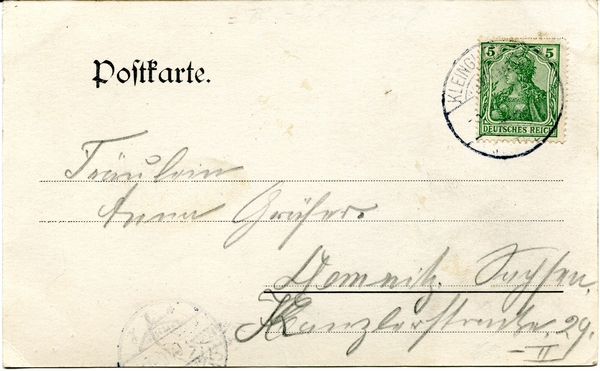 Postkarte.
5 5
DEUTSCHES REICH
KLEING
Fräulein
Anna Gräfers
Sachsen,
Kanzlerstrasse 29.
II